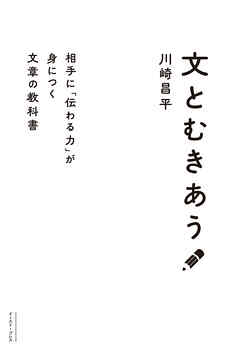 文とむきあう
川崎昌平
相手に「伝わる力」が
身につく
文章の教科書